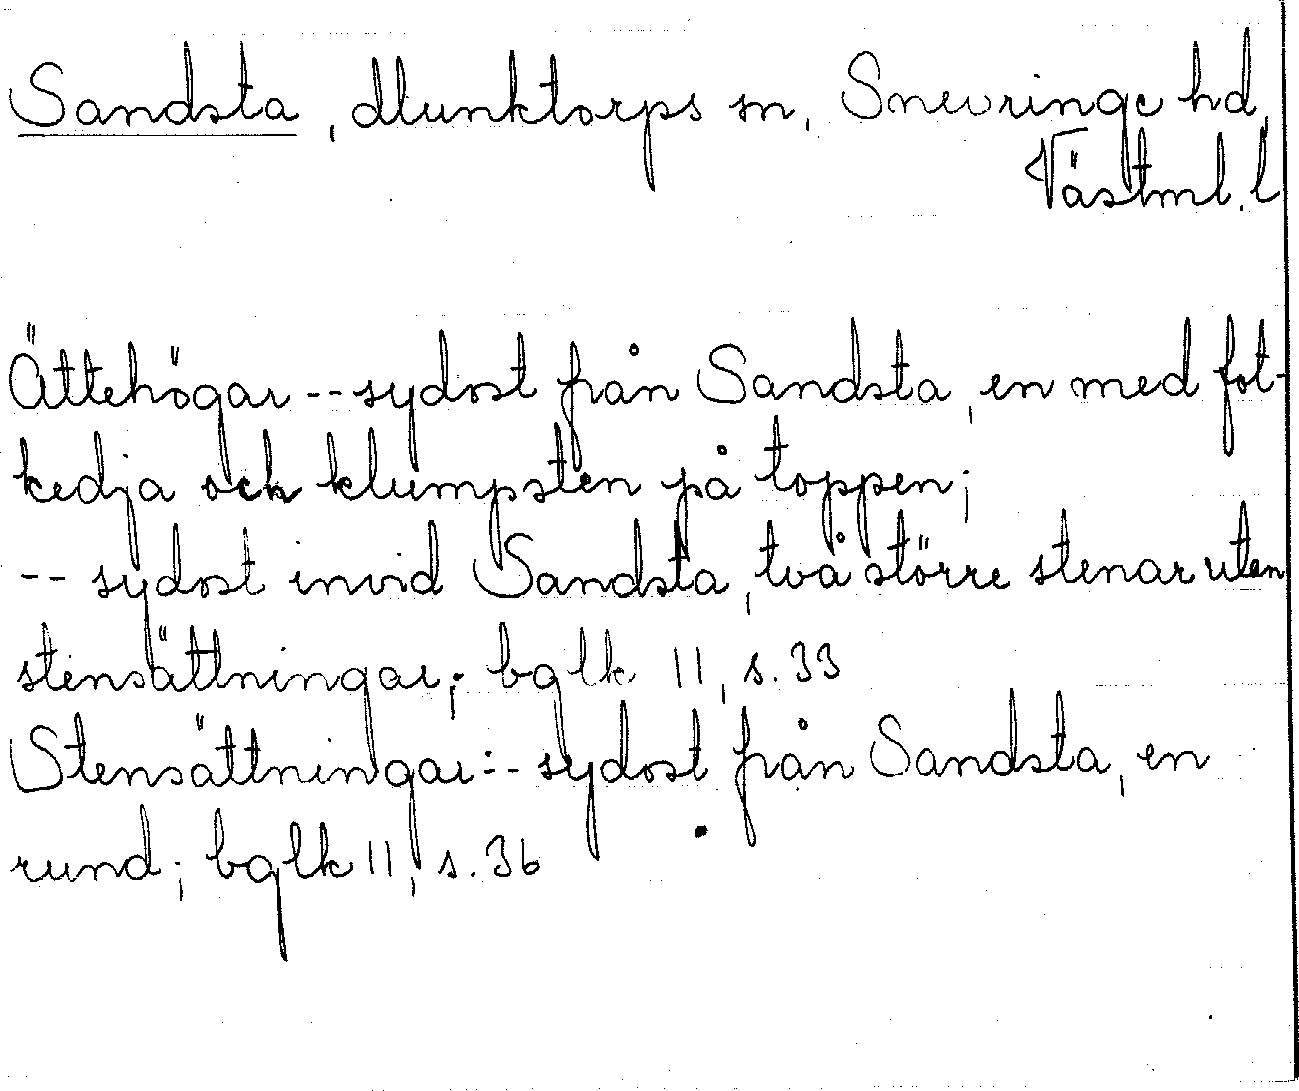 Sandsta, Munktorps sn, Snevringe hd,
Västml. l
Ättehögar -- sydost från Sandsta, en med fot-
kedja och klumpsten på toppen;
-- sydost invid Sandsta, två större stenar utan
stensättningar; bglk 11, s. 33
Stensättningar: - sydost från Sandsta, en
rund; bglk 11, s. 36